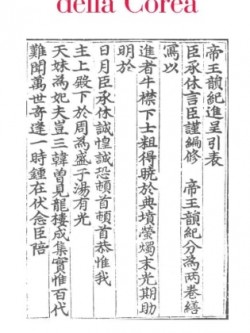 della Corea
帝王韻紀進呈引表
臣承休言臣謹編修 帝王韻紀分為兩卷繕
寫以
進者牛襟下士粗得曉於典墳螢燭末光期助
明於
日月臣承休誠惶誠恐頓首頓首恭惟我
主上殿下於周為盛于湯有光
天妹為妃夫豈三韓曾見龍樓成集實惟百代
難聞萬世奇逢一時鍾在伏念臣陪